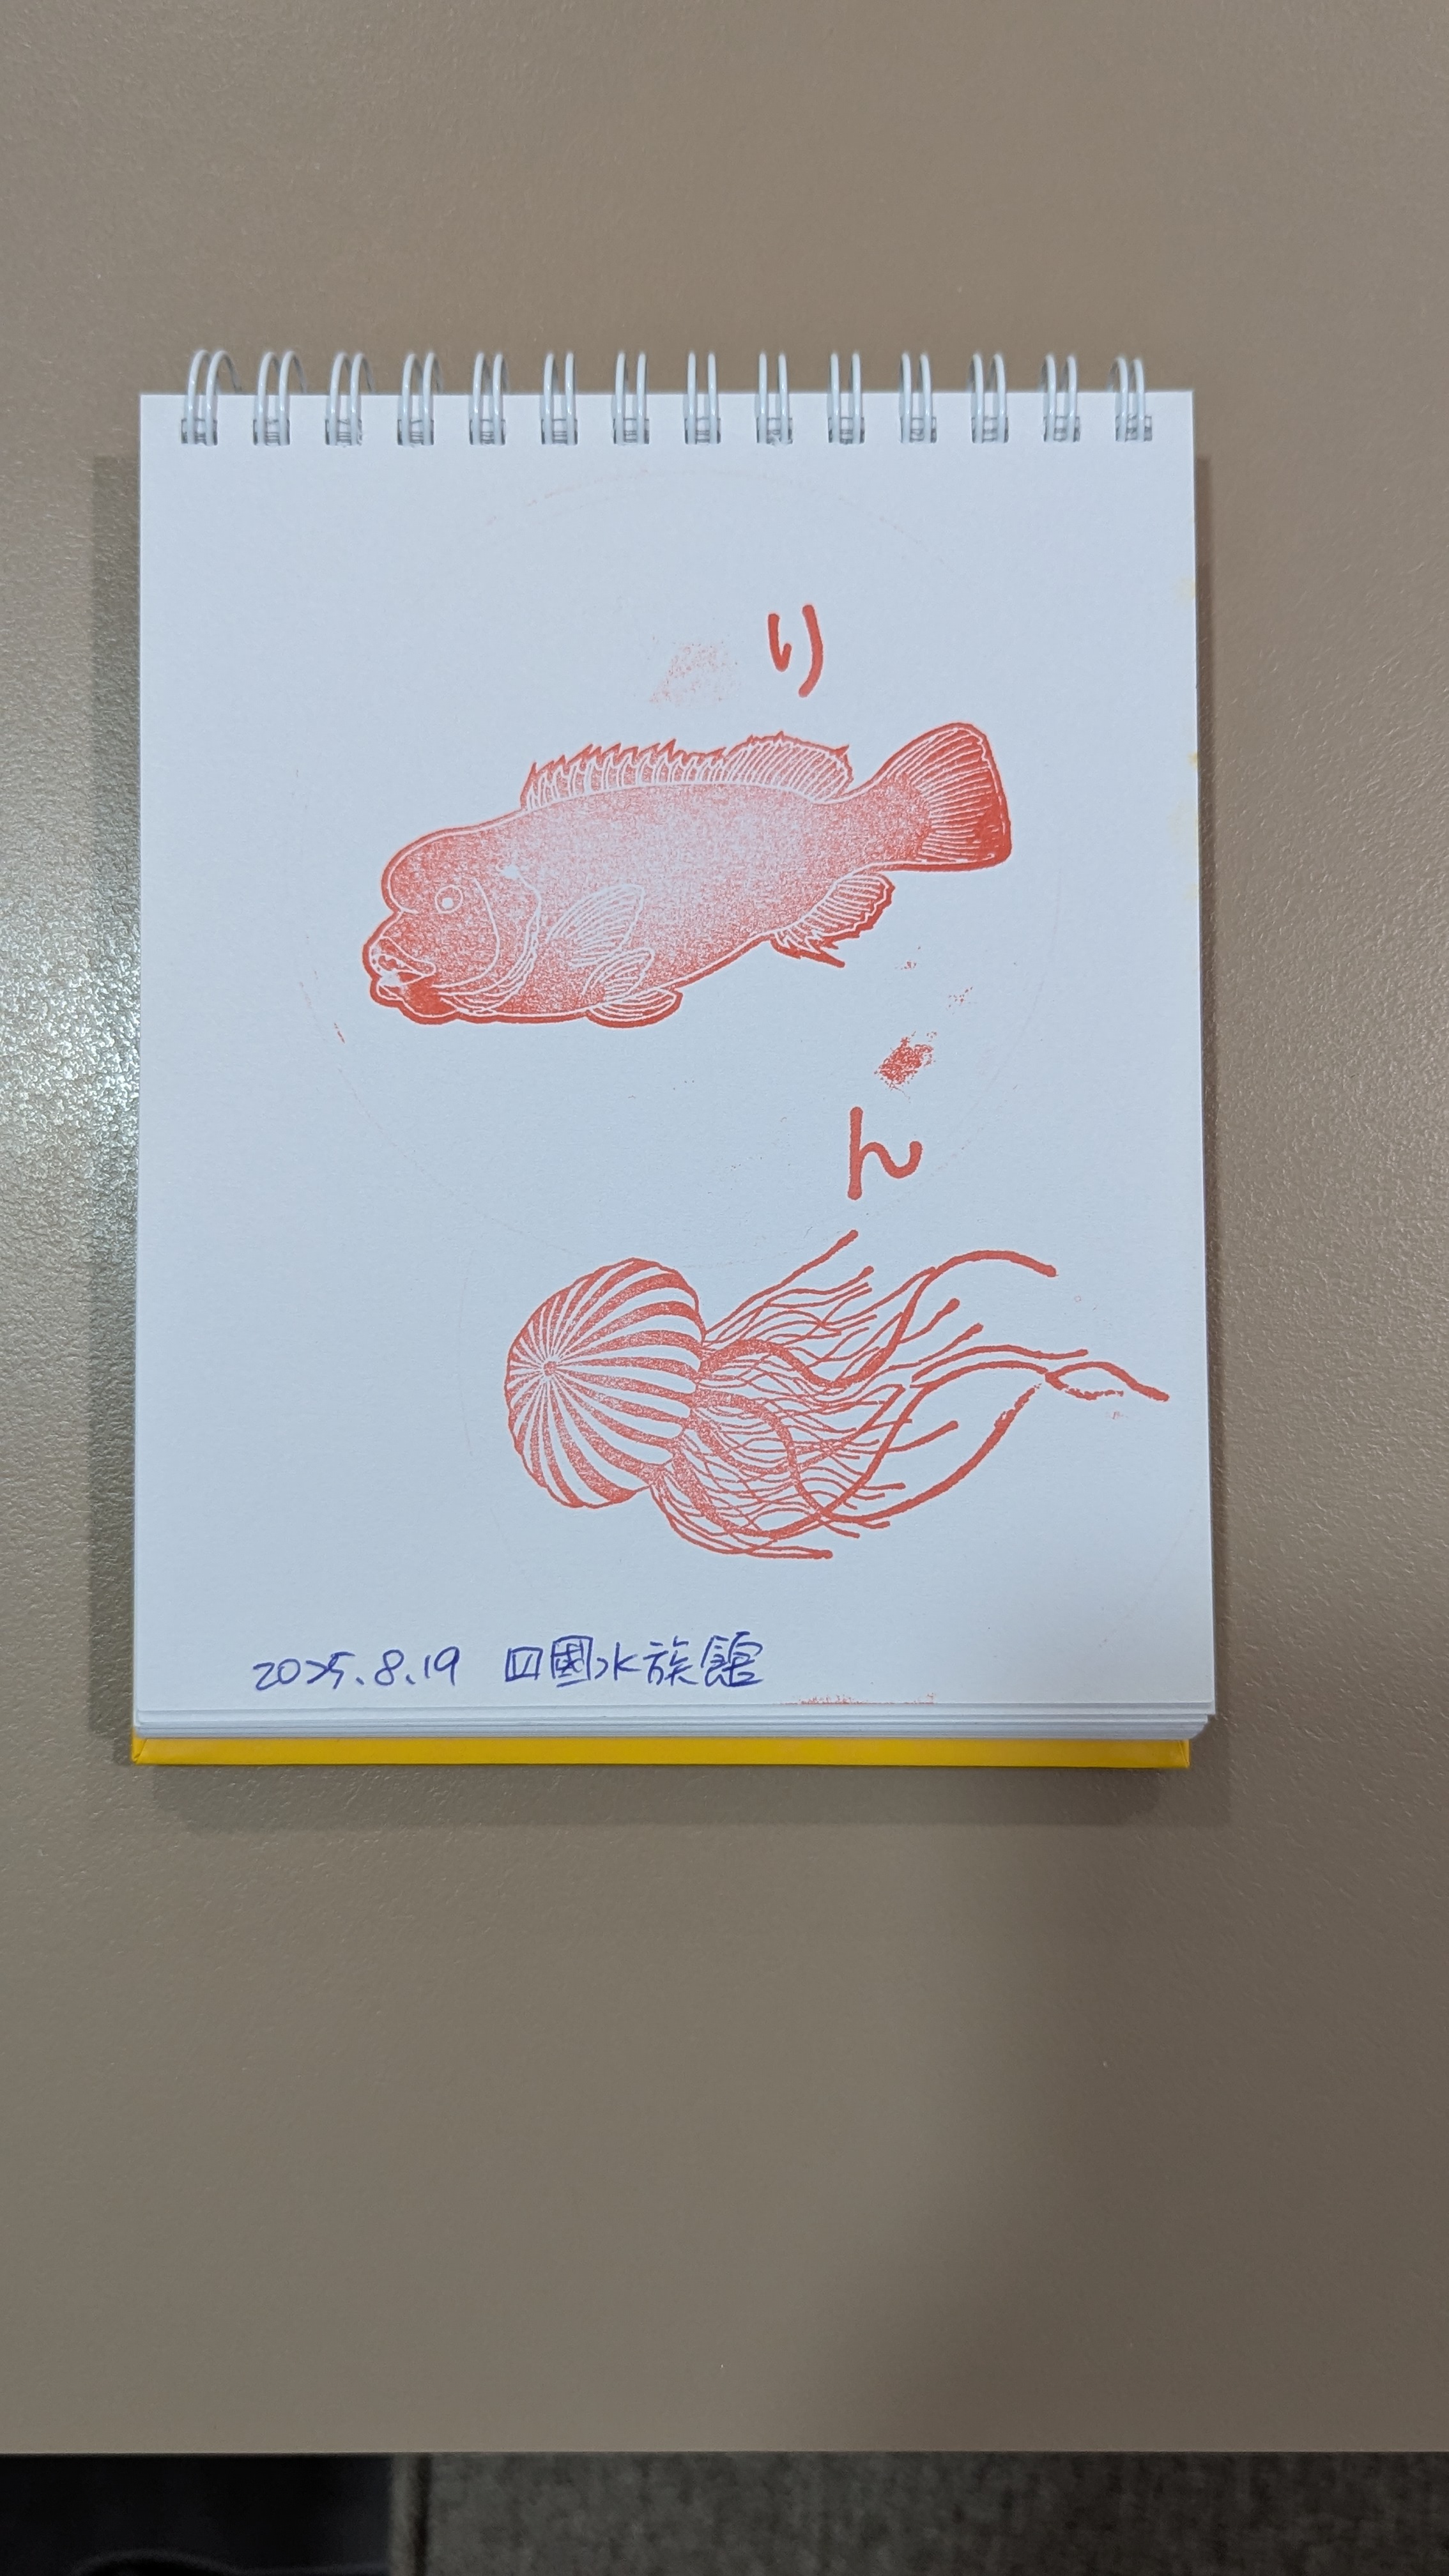 り
ん
2025.8.19 四國水族館